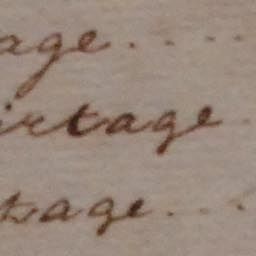 age.....
irtage
tsage....